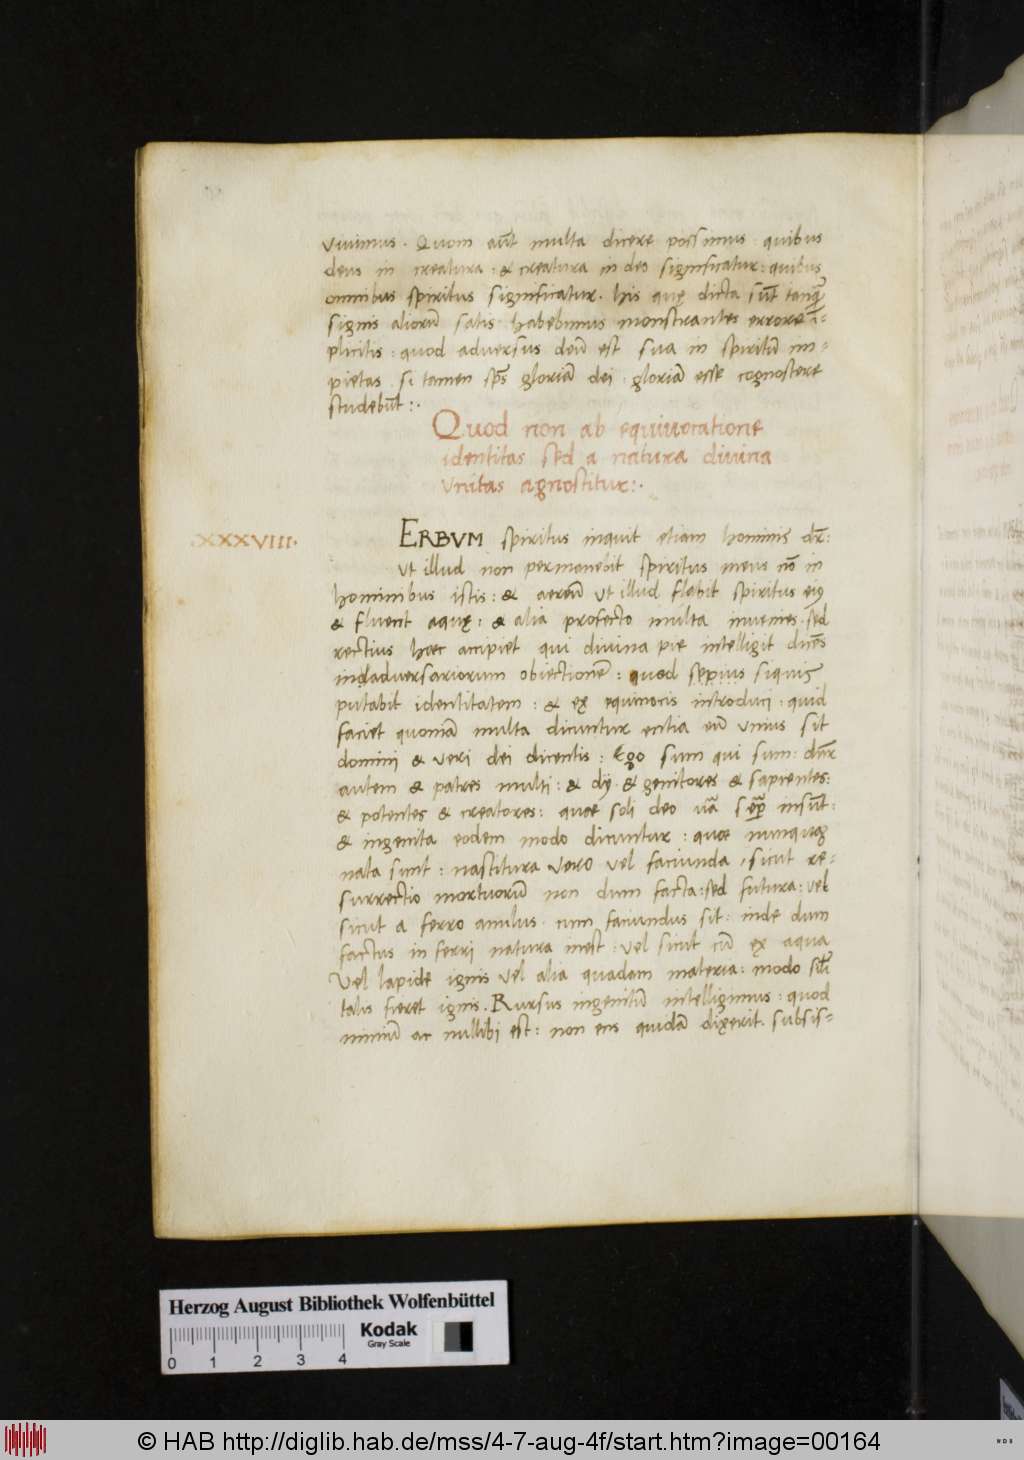 vivimus. Quom aūt multa dicere possimus: quibus
deus in creatura: & creatura in deo significatur: quibus
omnibus spiritus significatur. his quę dicta sūt tanq̄
signis aliorū satis habebimus monstrantes errore ī=
plicitis: quod adversus deū est sua in spiritū im=
pietas si tamen sp̄s gloriā dei: gloriā esse cognoscere
studebūt:.
Quod non ab equivocatione
identitas sed a natura divina
unitas agnoscitur:.
.XXXVIII.
ERBVM spiritus inquit etiam hominis dr̄:
ut illud non permanebit spiritus meus nō in
hominibus istis: & aereum ut illud flabit spiritus eiꝰ
& fluent aquę: & alia profecto multa invenies. sed
rectius haec accipiet qui divina pie intelligit dicēs
adversariorum obiectionē: quod sepius siquis
putabit identitatem: & ex equivocis introduci: quid
faciet quoniā multa dicuntur entia cū unius sit
domini & veri dei dicentis: Ego sum qui sum: dn̄r
autem & patres multi: & dij & genitores & sapientes:
& potentes & creatores: quae soli deo sēp̄ insūt:
& ingenita eodem modo dicuntur: quae nunquaʒ
nata sunt: nascitura vero vel faciunda, sicut re=
surrectio mortuorū non dum facta: sed futura: vel
sicut a ferro anulus cum faciundus sit: inde dum
factus in ferri natura inest: vel sicut cū ex aqua
vel lapide ignis vel alia quadam materia: modo
talis fieret ignis. Rursus ingenitū intelligimus: quod
nimiū ac nullibi est: non ens quidā dixerit. subsis=
Herzog August Bibliothek Wolfenbüttel
Kodak
Gray Scale
0 1 2 3 4
© HAB http://diglib.hab.de/mss/4-7-aug-4f/start.htm?image=00164